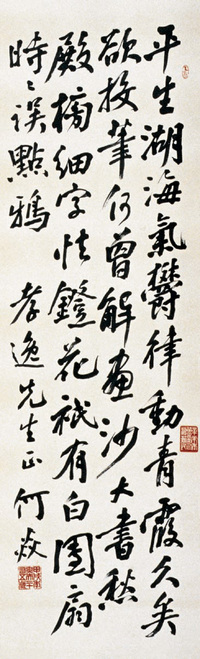 平生湖海氣欝律動青霞久矣
欲投筆何曾解畫沙大書愁
殿榜細字怯鐙花祇有白團扇
時〻誤點鴉 孝逸先生正 何焱